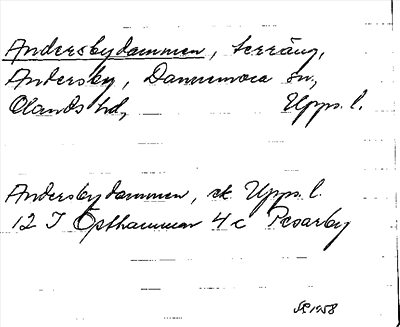 Andersbydammen, terräng,
Andersby, Dannemora sn,
Olands hd, Upps. l.
Andersbydammen, ek Upps. l.
12 I Östhammar 4c Pesarby
1958